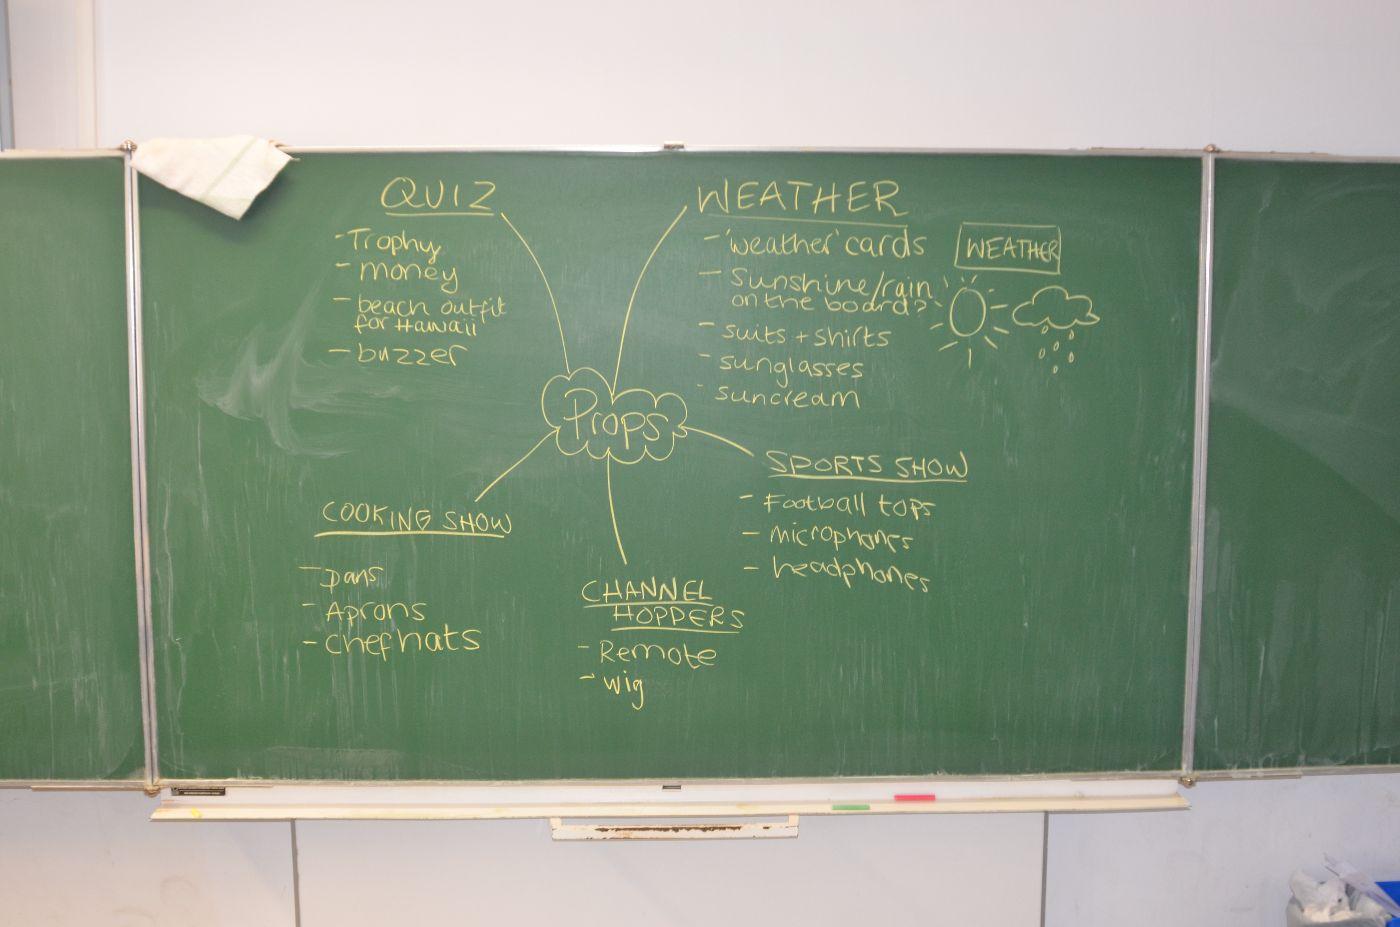 QUIZ
-Trophy
- money
- beach outfit
for Hawaii
- buzzer
WEATHER
- 'weather' cards
- Sunshine/rain
on the board?
- suits + shirts
- sunglasses
- suncream
WEATHER
Props
SPORTS SHOW
- Football tops
- microphones
- headphones
COOKING SHOW
- pans
- Aprons
- chef hats
CHANNEL
HOPPERS
- Remote
- wig